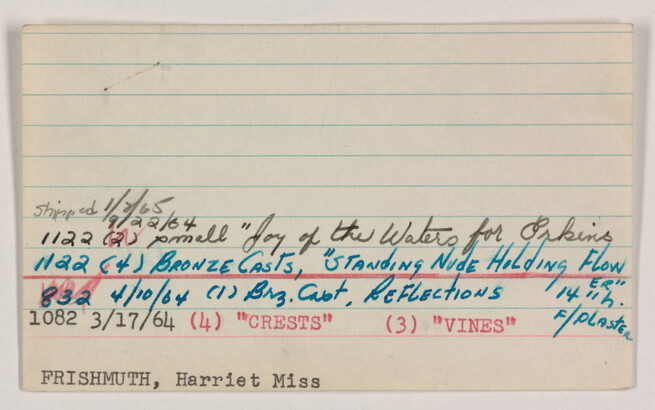 Shipped 1/7/65
9/22/64
1122 (2) small "Joy of the Waters for Erkins
1122 (4) BRONZE CASTS, "STANDING NUDE HOLDING FLOWER"
832 4/10/64 (1) BRZ. CAST, REFLECTIONS 14" h.
F/PLASTER
1082 3/17/64 (4) "CRESTS" (3) "VINES"
FRISHMUTH, Harriet Miss